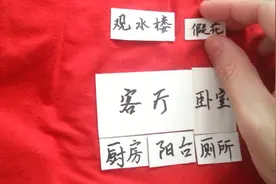 观水楼 假花
客厅 卧室
厨房 阳台 厕所